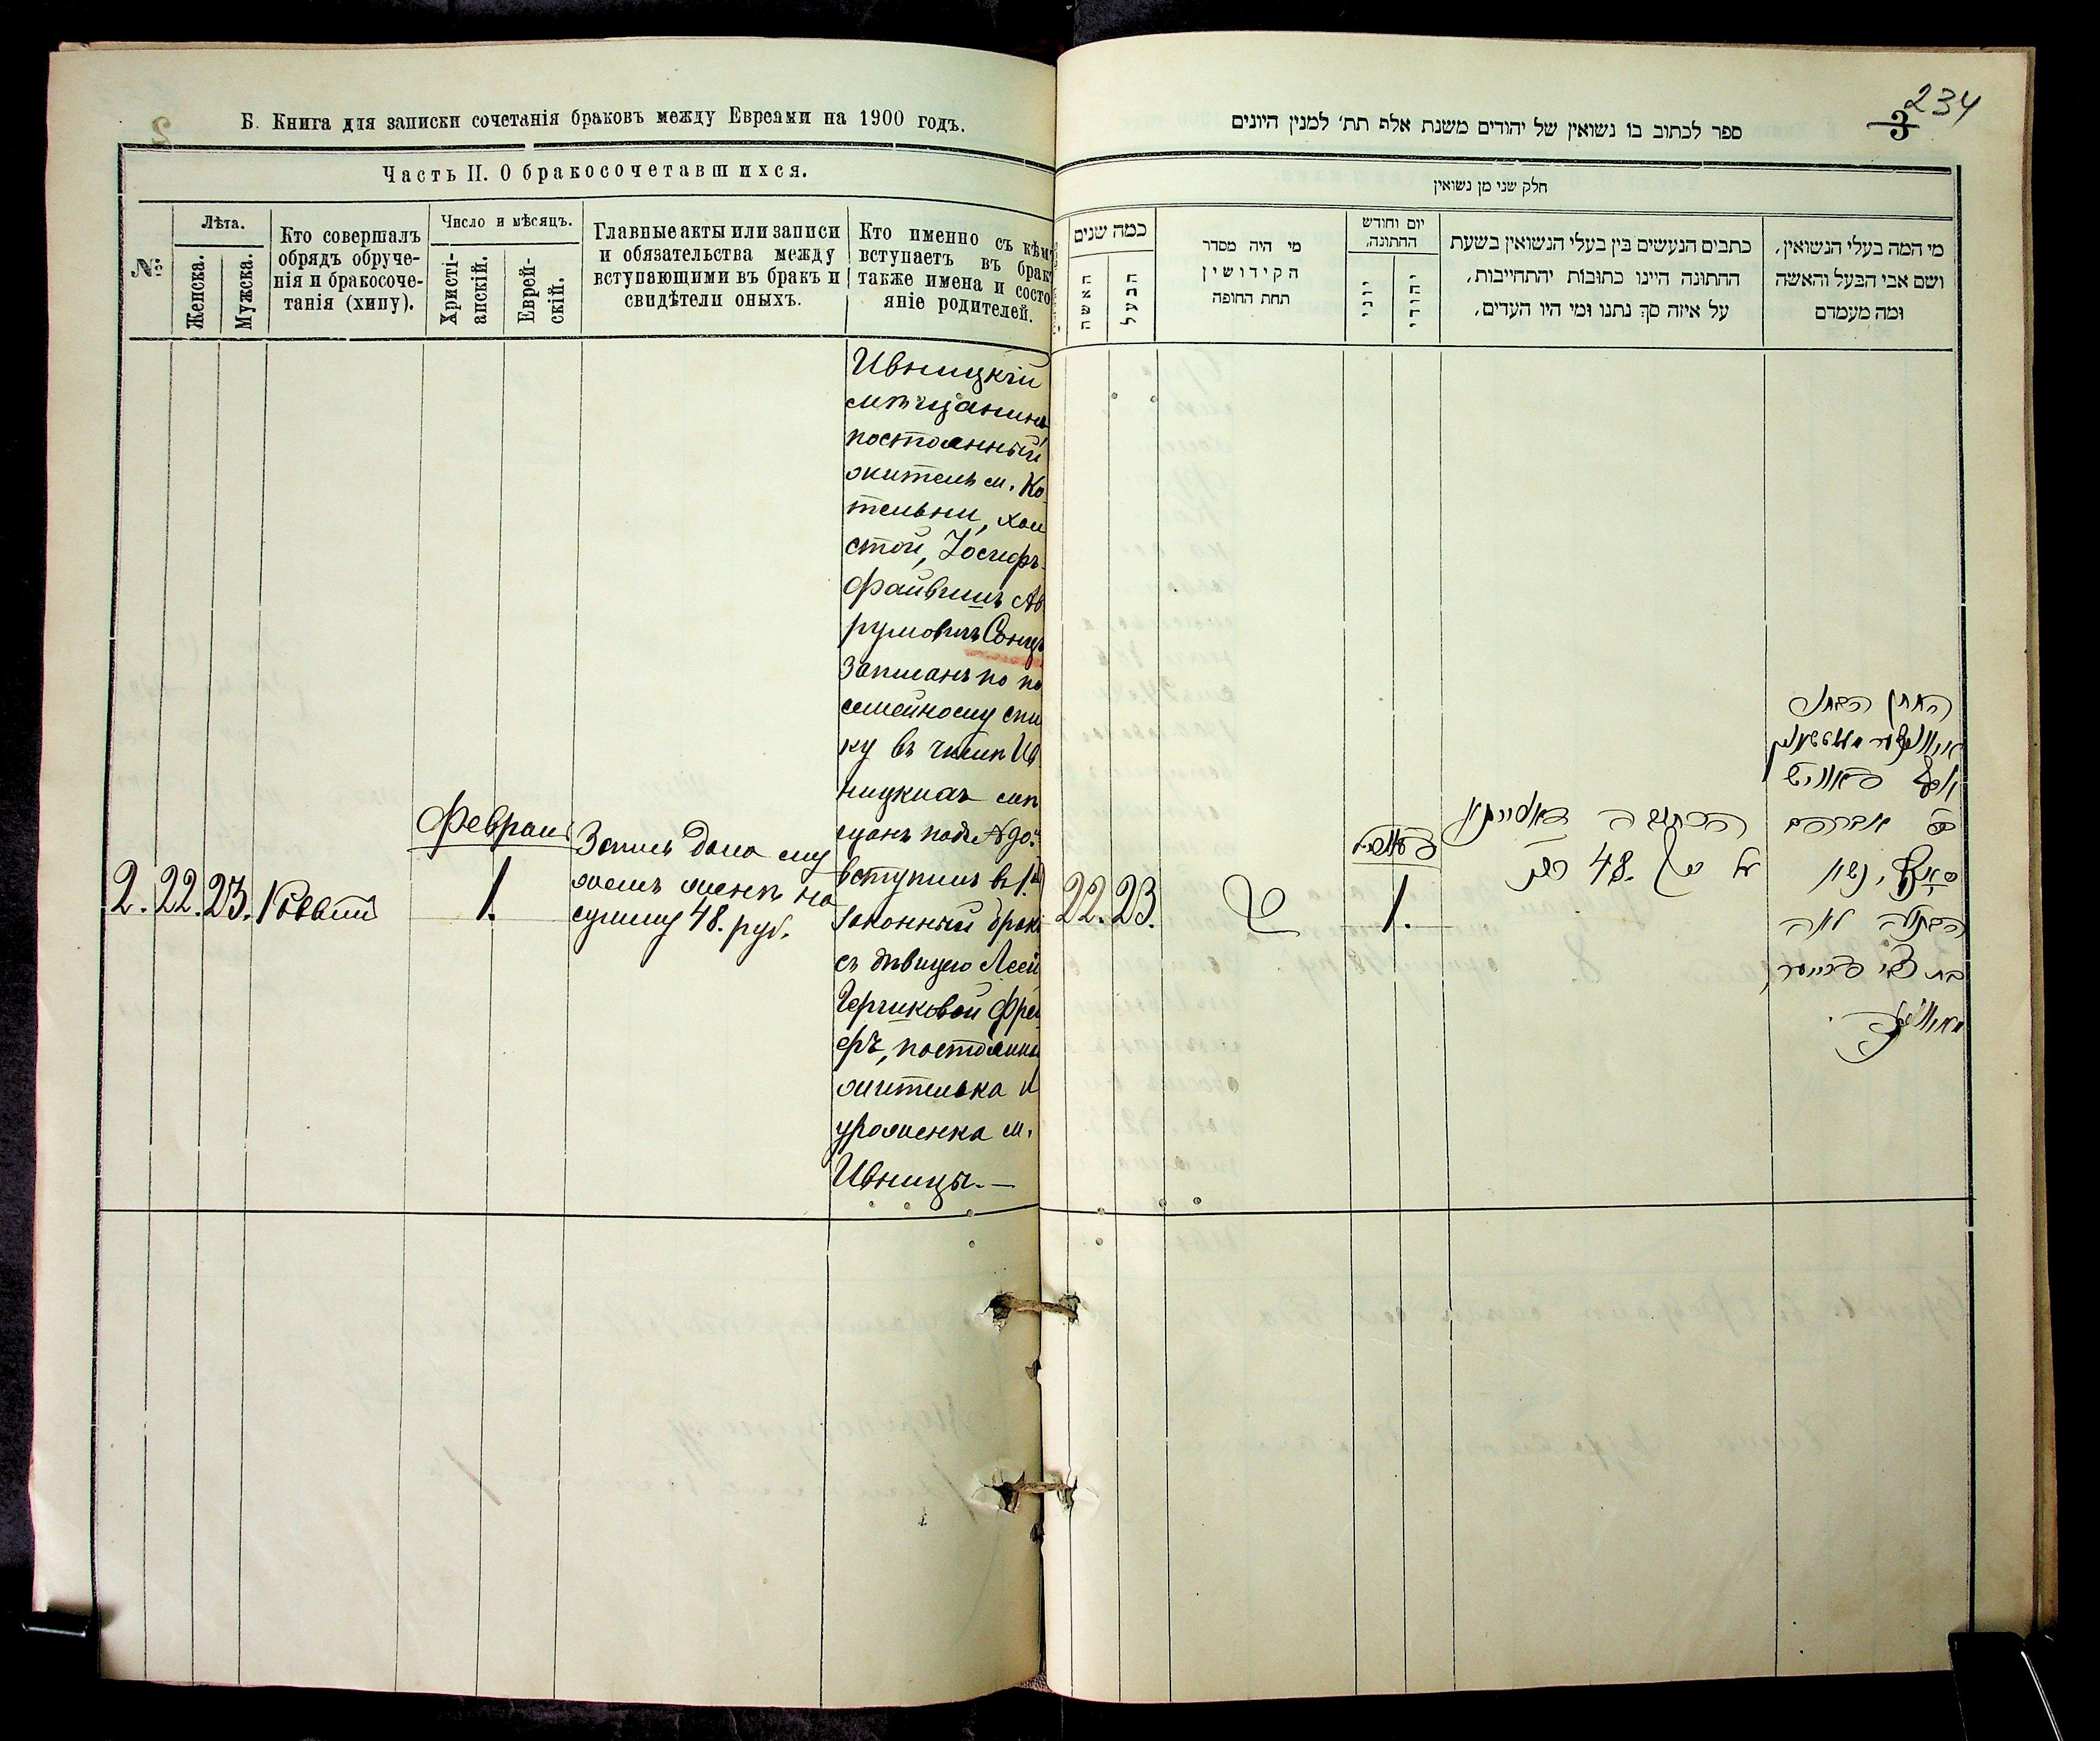 Б. Книга для записки сочетанія браковъ между Евреями на 1900 годъ.
Часть II. О бракосочетавшихся.
№
Лѣта.
Женска.
Мужска.
Кто совершалъ
обрядъ обруче-
нія и бракосоче-
танія (хипу).
Число и мѣсяцъ.
Христі-
анскій.
Еврей-
скій.
Главные акты или записи
и обязательства между
вступающими въ бракъ и
свидѣтели оныхъ.
Кто именно съ кѣмъ
вступаетъ въ бракъ
также имена и состо
яніе родителей.
2. 22. 23.
Февраль
1.
Запись дана му
жемъ женѣ на
сумму 48. руб.
Ивницкій
мѣщанинъ
постоянный
житель м. Ко
тельни, холо
стой, Іосифъ
Файвишъ Ав
румовичъ
Записанъ по по
семейному спи
ску въ числѣ Ив
ницкихъ мѣ
щанъ подъ №
вступилъ въ 1й
законный бракъ
съ дѣвицею Леей
Герчиковой Фрей
еръ, постоянная
жителька и
уроженка м.
Ивницы.—
234
3
ספר לכתוב בו נשואין של יהודים משנת אלף תת׳ למנין היונים
חלק שני מן נשואין
כמה שנים
האשה
הבעל
מי היה מסדר
הקידושין
תחת החופה
יום וחודש
החתונה.
יוני
יהודי
כתבים הנעשים בין בעלי הנשואין בשעת
החתונה היינו כתובות יהתחייבות,
על איזה סך נתנו ומי היו העדים,
מי המה בעלי הנשואין,
ושם אבי הבעל והאשה
ומה מעמדם
22. 23.
1.
הכתובה
על סך 48.
החתן הבחור
יוסף פאוויש
בן אברהם
נשא
הבתולה לאה
בת